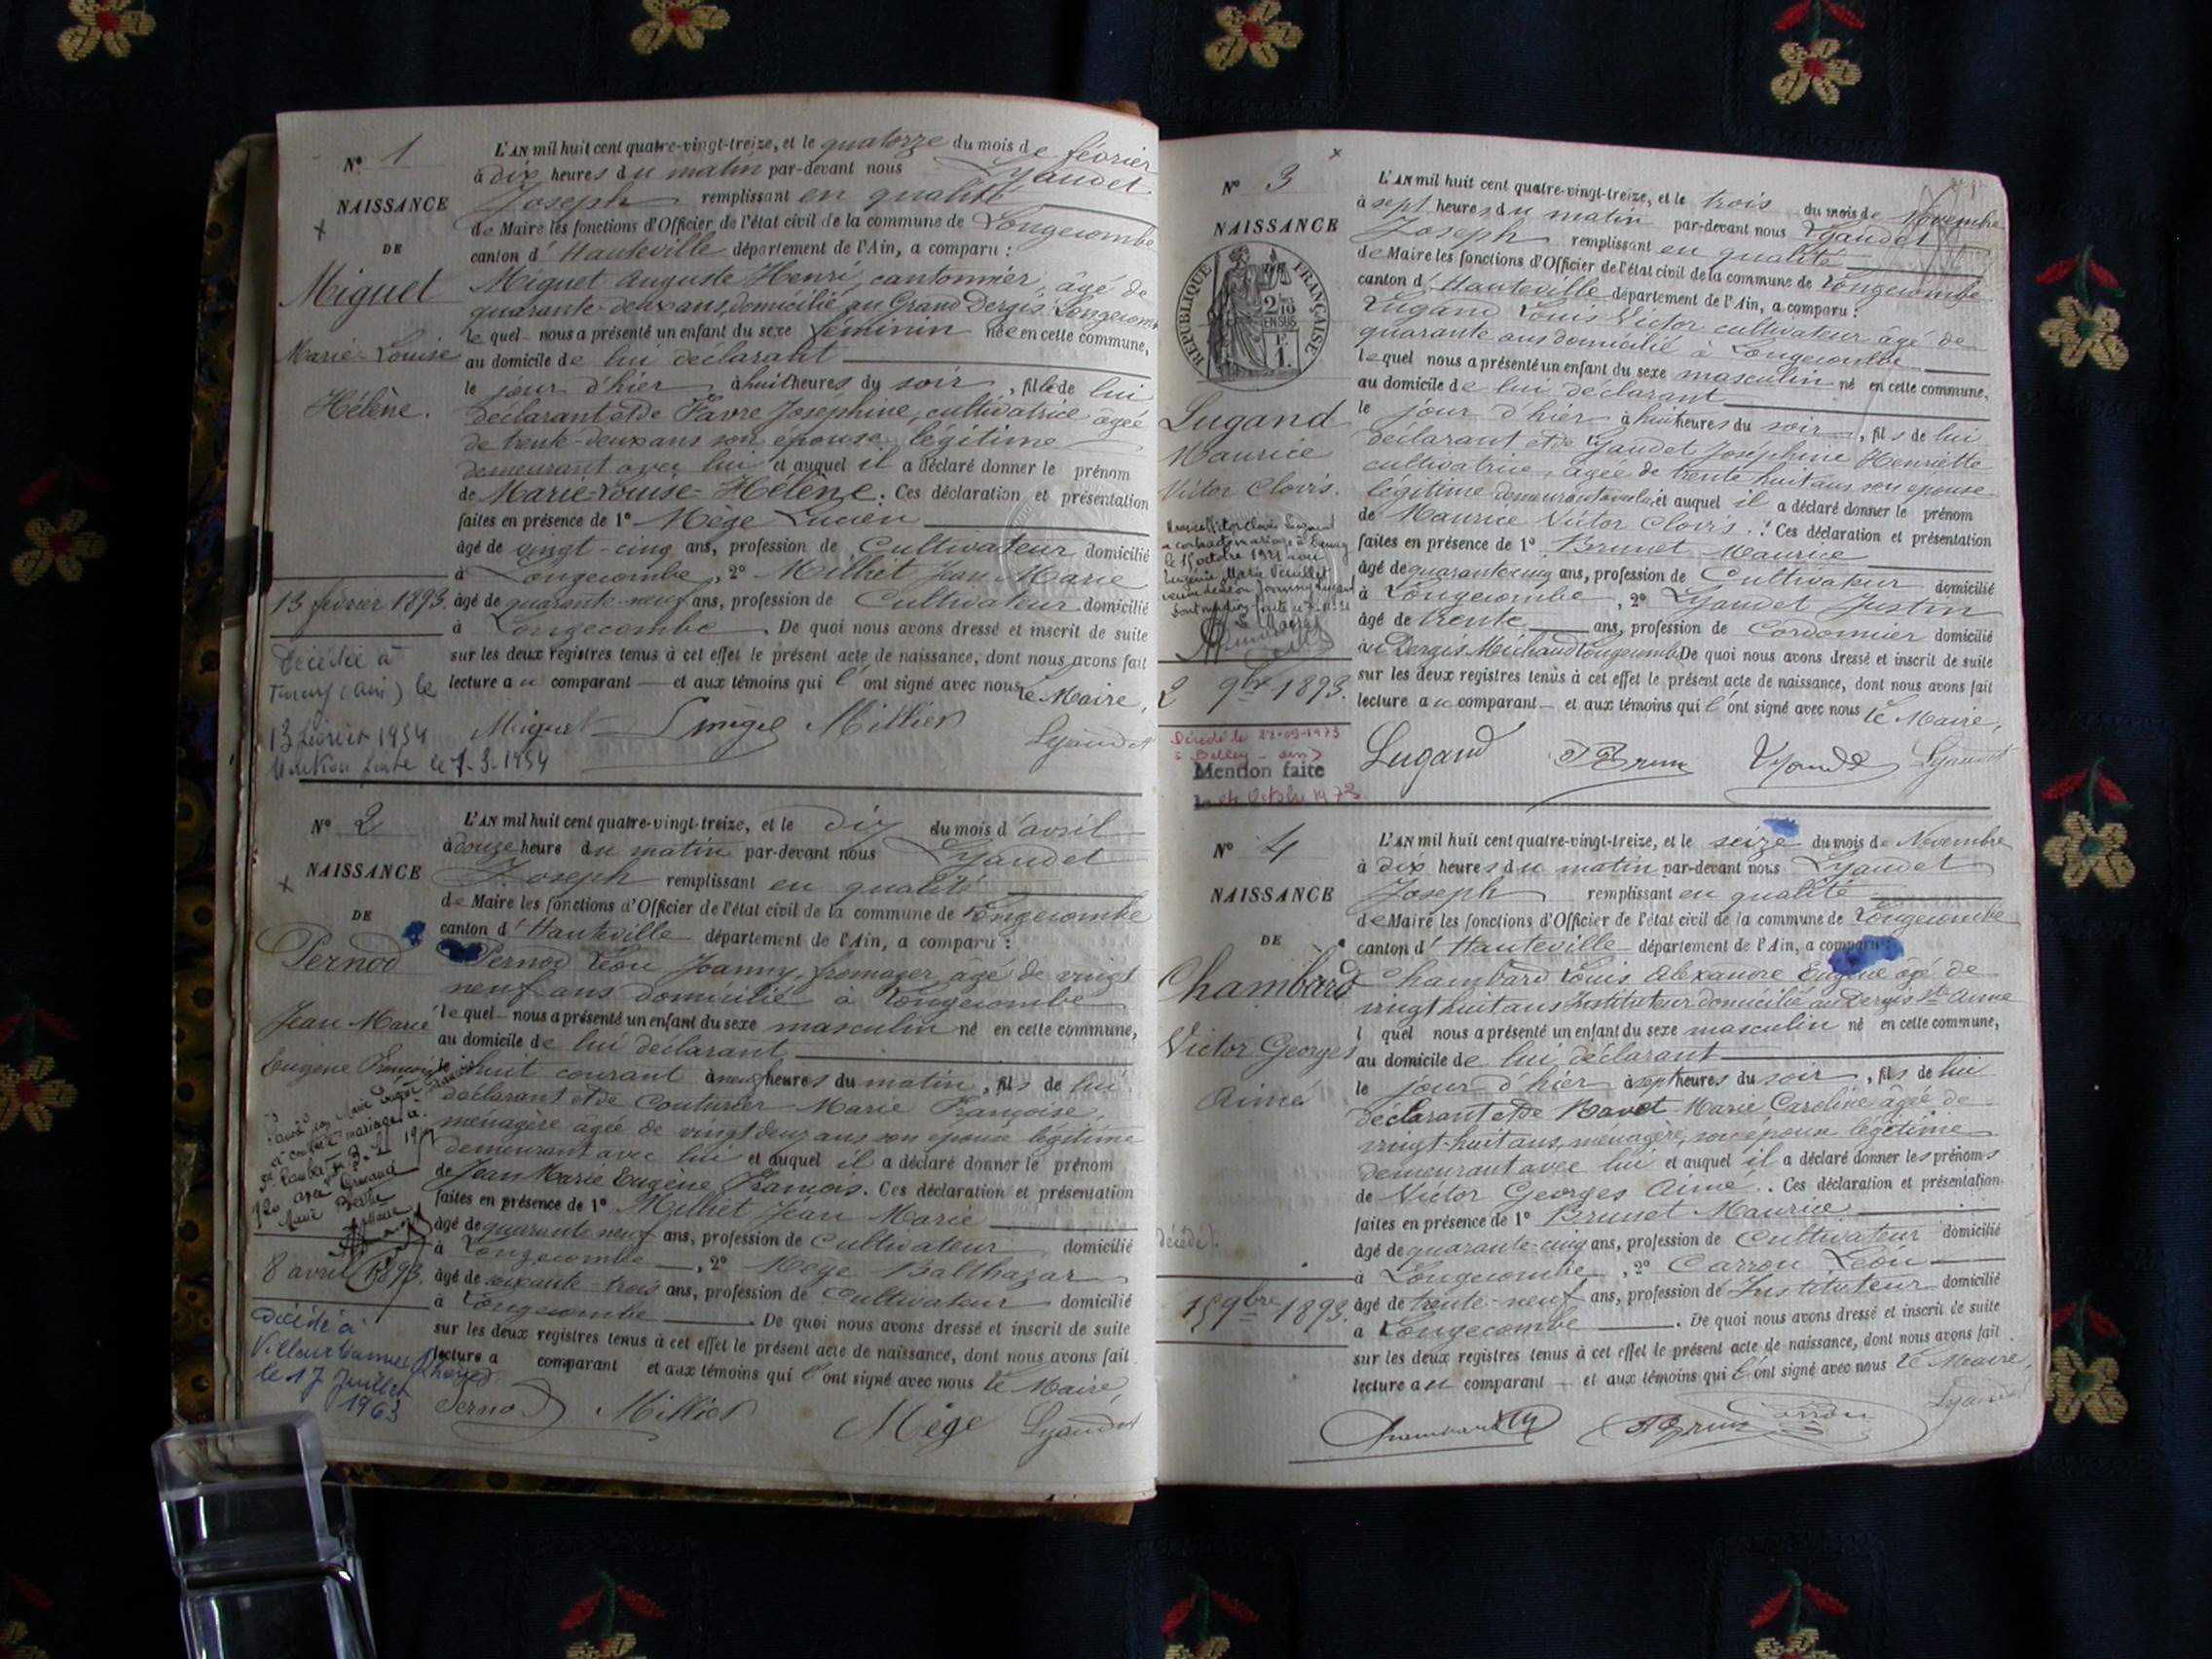 N° 1
NAISSANCE
DE
Miguet
Marie-Louise
Hélène.
13 février 1893.
Décédée à
(Ain) le
13 février 1954
le 1-3-1954
L'AN mil huit cent quatre-vingt-treize, et le quatorze du mois de février
à dix heures du matin par-devant nous Lyaudet
Joseph remplissant en qualité
de Maire les fonctions d'Officier de l'état civil de la commune de Longecombe
canton d'Hauteville département de l'Ain, a comparu :
Miguet Auguste Henri, cantonnier, âgé de
quarante-deux ans, domicilié au Grand Dergis Longecombe
le quel nous a présenté un enfant du sexe féminin née en cette commune,
au domicile de lui déclarant
le jour d'hier à huit heures du soir, fille de lui
déclarant et de Favre Joséphine, cultivatrice âgée
de trente-deux ans son épouse légitime
demeurant avec lui et auquel il a déclaré donner le prénom
de Marie-Louise-Hélène. Ces déclaration et présentation
faites en présence de 1° Mège Lucien
âgé de vingt-cinq ans, profession de Cultivateur domicilié
à Longecombe, 2° Milliet Jean Marie
âgé de quarante-neuf ans, profession de Cultivateur domicilié
à Longecombe. De quoi nous avons dressé et inscrit de suite
sur les deux registres tenus à cet effet le présent acte de naissance, dont nous avons fait
lecture au comparant et aux témoins qui l'ont signé avec nous Le Maire,
Miguet L. Mège Milliet Lyaudet
N° 2
NAISSANCE
DE
Pernod
Jean Marie
Eugène François
8 avril 1893.
Décédé à
Villeurbanne (Rhône)
le 17 Juillet
1963
L'AN mil huit cent quatre-vingt-treize, et le dix du mois d'avril
à douze heure du matin par-devant nous Lyaudet
Joseph remplissant en qualité
de Maire les fonctions d'Officier de l'état civil de la commune de Longecombe
canton d'Hauteville département de l'Ain, a comparu :
Pernod Léon Joanny, fromager âgé de vingt
neuf ans domicilié à Longecombe
le quel nous a présenté un enfant du sexe masculin né en cette commune,
au domicile de lui déclarant
le huit courant à neuf heures du matin, fils de lui
déclarant et de Couturier Marie Françoise,
ménagère âgée de vingt deux ans son épouse légitime
demeurant avec lui et auquel il a déclaré donner le prénom
de Jean Marie Eugène François. Ces déclaration et présentation
faites en présence de 1° Milliet Jean Marie
âgé de quarante neuf ans, profession de Cultivateur domicilié
à Longecombe, 2° Mège Balthazar
âgé de soixante-trois ans, profession de Cultivateur domicilié
à Longecombe. De quoi nous avons dressé et inscrit de suite
sur les deux registres tenus à cet effet le présent acte de naissance, dont nous avons fait
lecture a comparant et aux témoins qui l'ont signé avec nous Le Maire,
Pernod Milliet Mège Lyaudet
N° 3
NAISSANCE
RÉPUBLIQUE FRANÇAISE
2/10
EN SUS
F.
1.
Lugand
Maurice
Victor Clovis.
2 9bre 1893.
Décédé le 22-09-1973
à Belley - Ain
Mention faite
le Octobre 1973
L'AN mil huit cent quatre-vingt-treize, et le trois du mois de Novembre
à sept heures du matin par-devant nous Lyaudet
Joseph remplissant en qualité
de Maire les fonctions d'Officier de l'état civil de la commune de Longecombe
canton d'Hauteville département de l'Ain, a comparu :
Lugand Louis Victor cultivateur âgé de
quarante ans domicilié à Longecombe
lequel nous a présenté un enfant du sexe masculin né en cette commune,
au domicile de lui déclarant
le jour d'hier à huit heures du soir, fils de lui
déclarant et de Lyaudet Joséphine Henriette
cultivatrice, âgée de trente huit ans son épouse
légitime demeurant avec lui et auquel il a déclaré donner le prénom
de Maurice Victor Clovis. Ces déclaration et présentation
faites en présence de 1° Brunet Maurice
âgé de quarante cinq ans, profession de Cultivateur domicilié
à Longecombe, 2° Lyaudet Justin
âgé de trente ans, profession de Cordonnier domicilié
au Dergis Michaud Longecombe De quoi nous avons dressé et inscrit de suite
sur les deux registres tenus à cet effet le présent acte de naissance, dont nous avons fait
lecture au comparant et aux témoins qui l'ont signé avec nous Le Maire,
Lugand Lyaudet Lyaudet
N° 4
NAISSANCE
DE
Chambard
Victor Georges
Aimé
décédé
15 9bre 1893.
L'AN mil huit cent quatre-vingt-treize, et le seize du mois de Novembre
à dix heures du matin par-devant nous Lyaudet
Joseph remplissant en qualité
de Maire les fonctions d'Officier de l'état civil de la commune de Longecombe
canton d'Hauteville département de l'Ain, a comparu :
Chambard Louis Alexandre Eugène âgé de
vingt huit ans Instituteur domicilié au Dergis Ste Anne
l quel nous a présenté un enfant du sexe masculin né en cette commune,
au domicile de lui déclarant
le jour d'hier à sept heures du soir, fils de lui
déclarant et de Bavet Marie Caroline âgée de
vingt-huit ans, ménagère, son épouse légitime
demeurant avec lui et auquel il a déclaré donner les prénoms
de Victor Georges Aimé. Ces déclaration et présentation
faites en présence de 1° Brunet Maurice
âgé de quarante-cinq ans, profession de Cultivateur domicilié
à Longecombe, 2° Carron Léon
âgé de trente-neuf ans, profession de Instituteur domicilié
à Longecombe. De quoi nous avons dressé et inscrit de suite
sur les deux registres tenus à cet effet le présent acte de naissance, dont nous avons fait
lecture au comparant et aux témoins qui l'ont signé avec nous Le Maire,
Carron Lyaudet